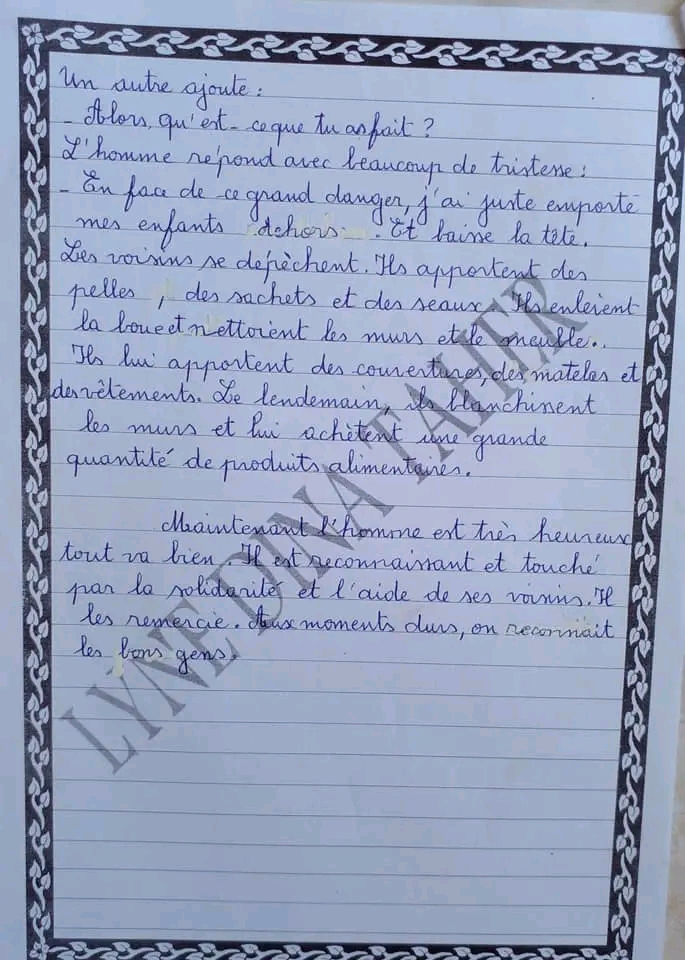 Un autre ajoute :
- Alors, qu'est-ce que tu as fait ?
L'homme répond avec beaucoup de tristesse :
- En face de ce grand danger, j'ai juste emporté
mes enfants dehors. Et baisse la tête.
Les voisins se dépèchent. Ils apportent des
pelles, des sachets et des seaux. Ils enlèient
la boue et nettoient les murs et le meuble..
Ils lui apportent des couvertures, des matelas et
des vêtements. Le lendemain, ils blanchissent
les murs et lui achètent une grande
quantité de produits alimentaires.
Maintenant l'homme est très heureux
tout va bien. Il est reconnaissant et touché
par la solidarité et l'aide de ses voisins. Il
les remercie. Aux moments durs, on reconnait
les bons gens.
LYNE DINA TAHER